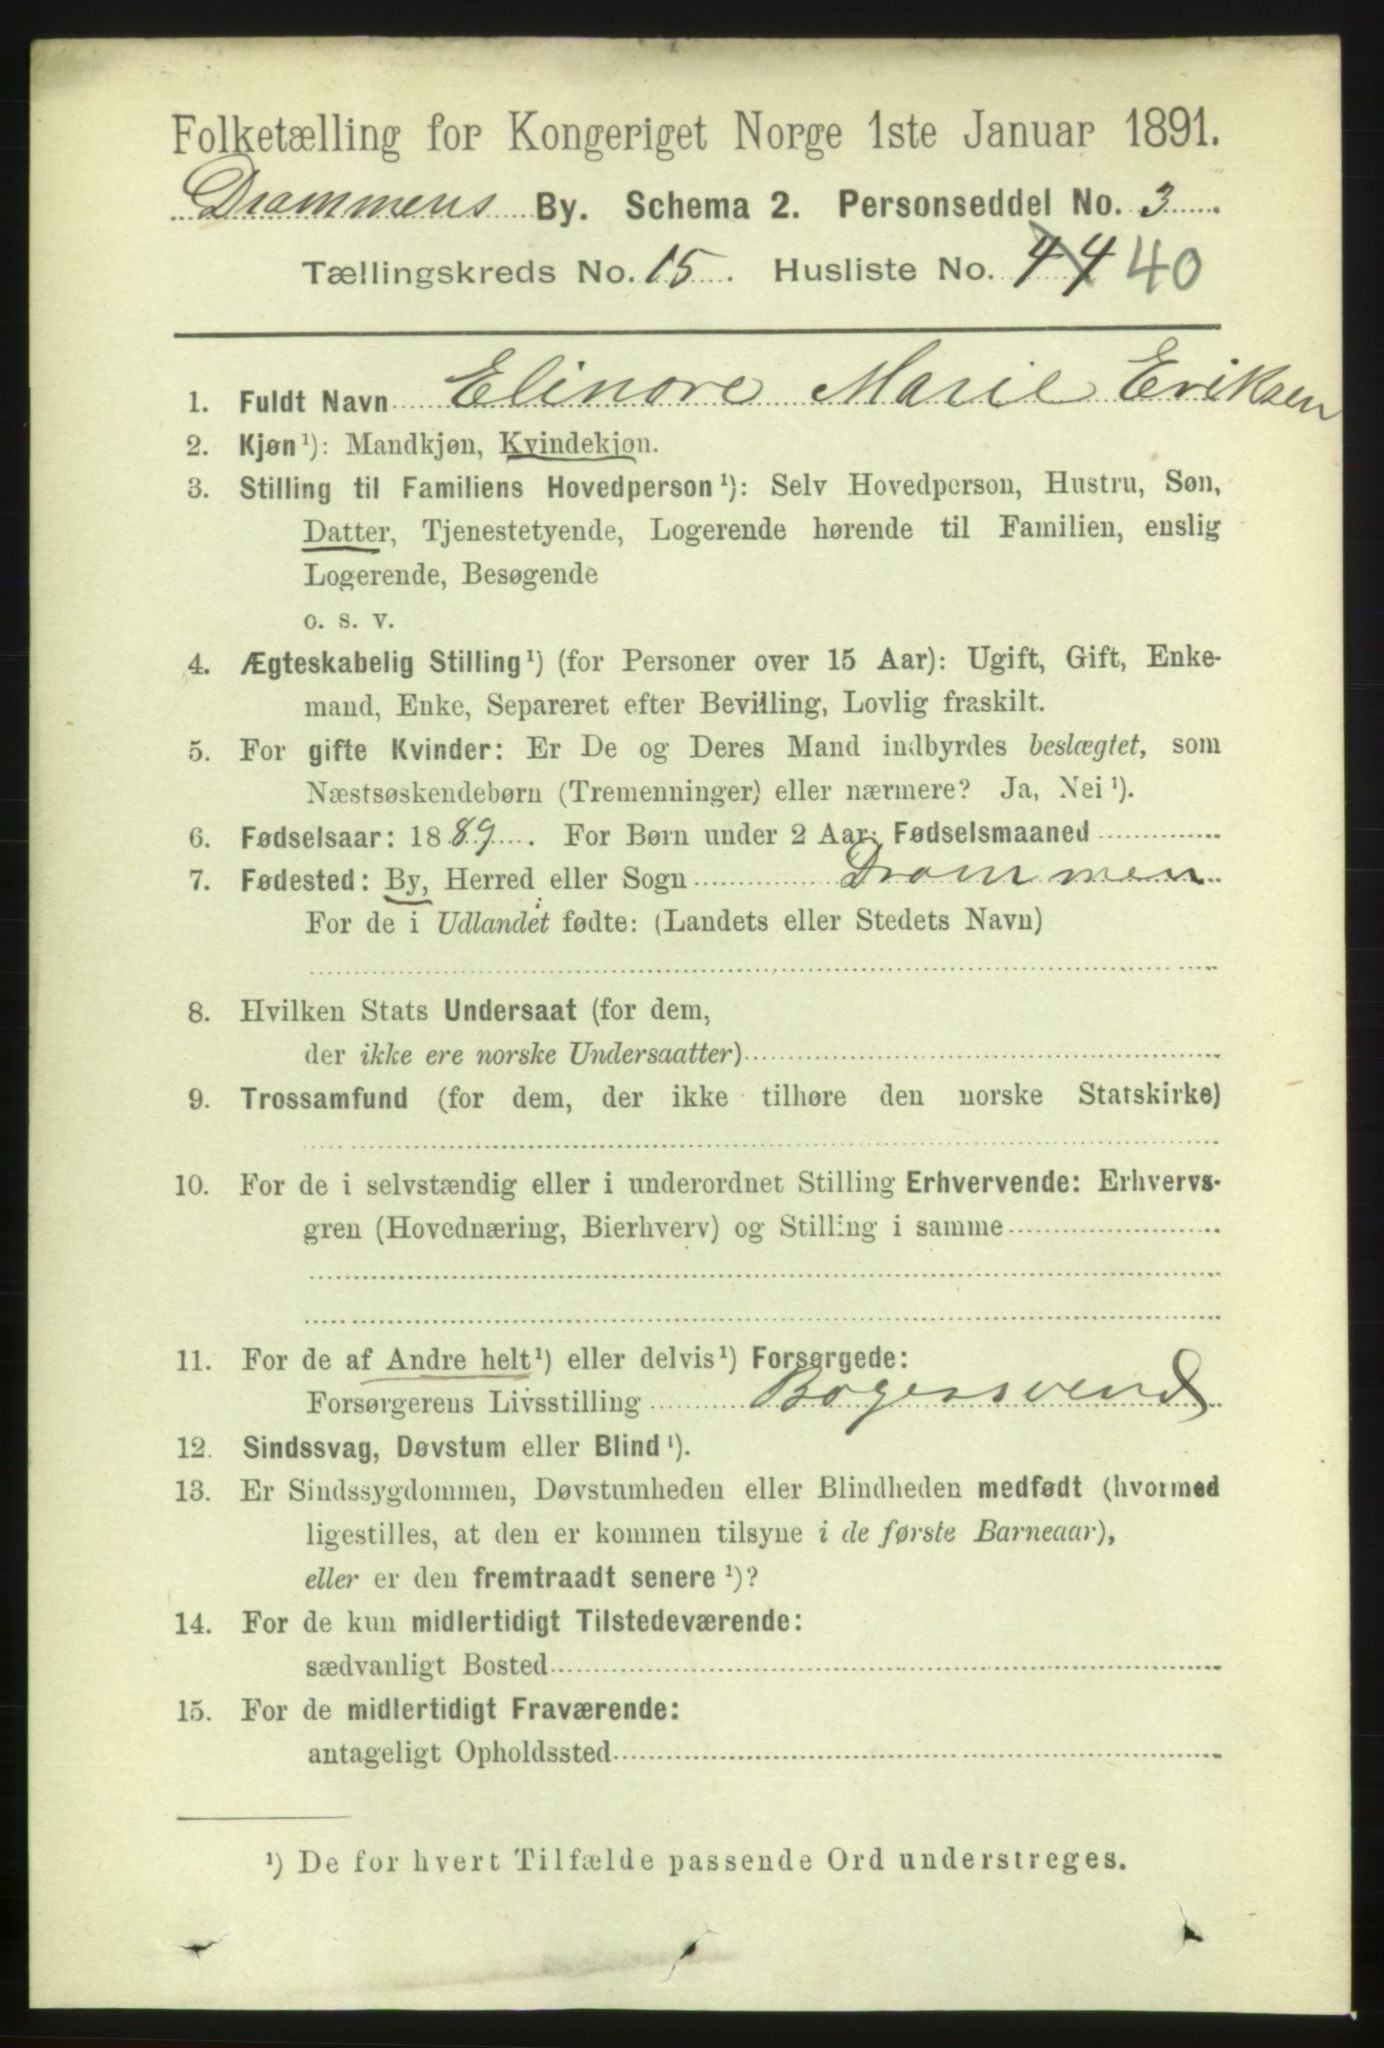 Folketælling for Kongeriget Norge 1ste Januar 1891.
Drammens By. Schema 2. Personseddel No. 3
Tællingskreds No. 15. Husliste No. 44 40
1. Fuldt Navn Elinore Marie Eriksen
2. Kjøn ¹): Mandkjøn, Kvindekjøn.
3. Stilling til Familiens Hovedperson ¹): Selv Hovedperson, Hustru, Søn,
Datter, Tjenestetyende, Logerende hørende til Familien, enslig
Logerende, Besøgende
o. s. v.
4. Ægteskabelig Stilling ¹) (for Personer over 15 Aar): Ugift, Gift, Enke-
mand, Enke, Separeret efter Bevilling, Lovlig fraskilt.
5. For gifte Kvinder: Er De og Deres Mand indbyrdes beslægtet, som
Næstsøskendebørn (Tremenninger) eller nærmere? Ja, Nei ¹).
6. Fødselsaar: 1889. For Børn under 2 Aar: Fødselsmaaned
7. Fødested: By, Herred eller Sogn Drammen
For de i Udlandet fødte: (Landets eller Stedets Navn)
8. Hvilken Stats Undersaat (for dem,
der ikke ere norske Undersaatter)
9. Trossamfund (for dem, der ikke tilhøre den norske Statskirke)
10. For de i selvstændig eller i underordnet Stilling Erhvervende: Erhvervs-
gren (Hovednæring, Bierhverv) og Stilling i samme
11. For de af Andre helt ¹) eller delvis ¹) Forsørgede:
Forsørgerens Livsstilling Bogersvend
12. Sindssvag, Døvstum eller Blind ¹).
13. Er Sindssygdommen, Døvstumheden eller Blindheden medfødt (hvormed
ligestilles, at den er kommen tilsyne i de første Barneaar),
eller er den fremtraadt senere ¹)?
14. For de kun midlertidigt Tilstedeværende:
sædvanligt Bosted
15. For de midlertidigt Fraværende:
antageligt Opholdssted
¹) De for hvert Tilfælde passende Ord understreges.